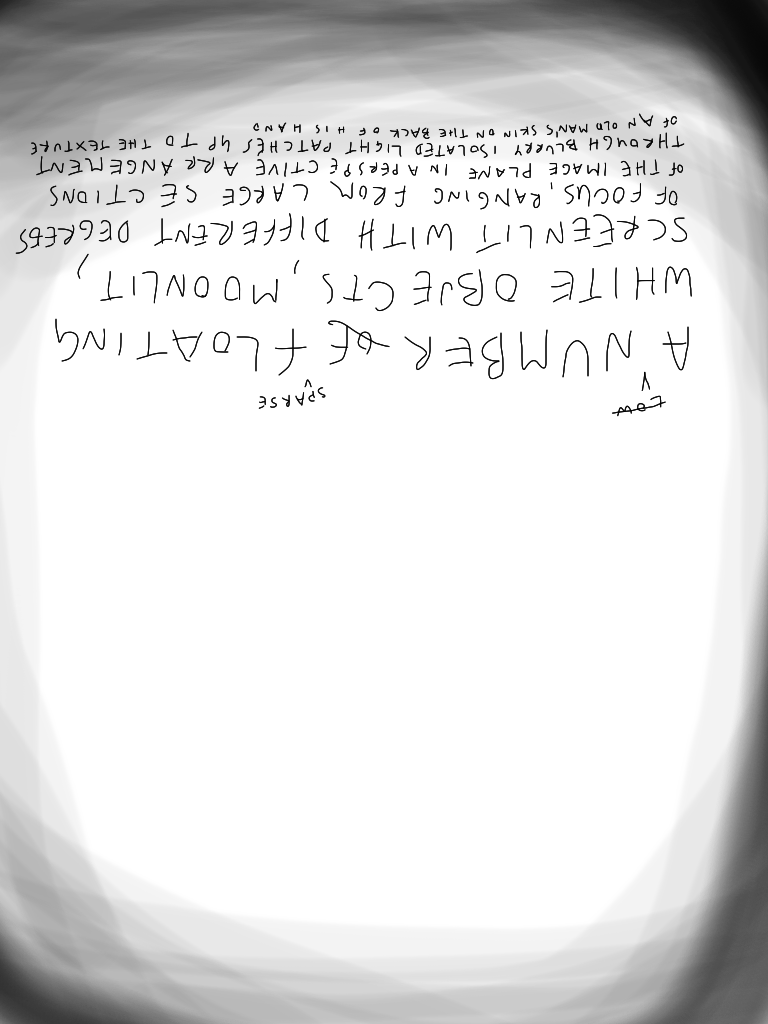 LOW
SPARSE
A NUMBER OF FLOATING
WHITE OBJECTS, MOONLIT,
SCREENLIT WITH DIFFERENT DEGREES
OF FOCUS, RANGING FROM LARGE SECTIONS
OF THE IMAGE PLANE IN A PERSPECTIVE ARRANGEMENT
THROUGH BLURRY ISOLATED LIGHT PATCHES UP TO THE TEXTURE
OF AN OLD MAN'S SKIN ON THE BACK OF HIS HAND